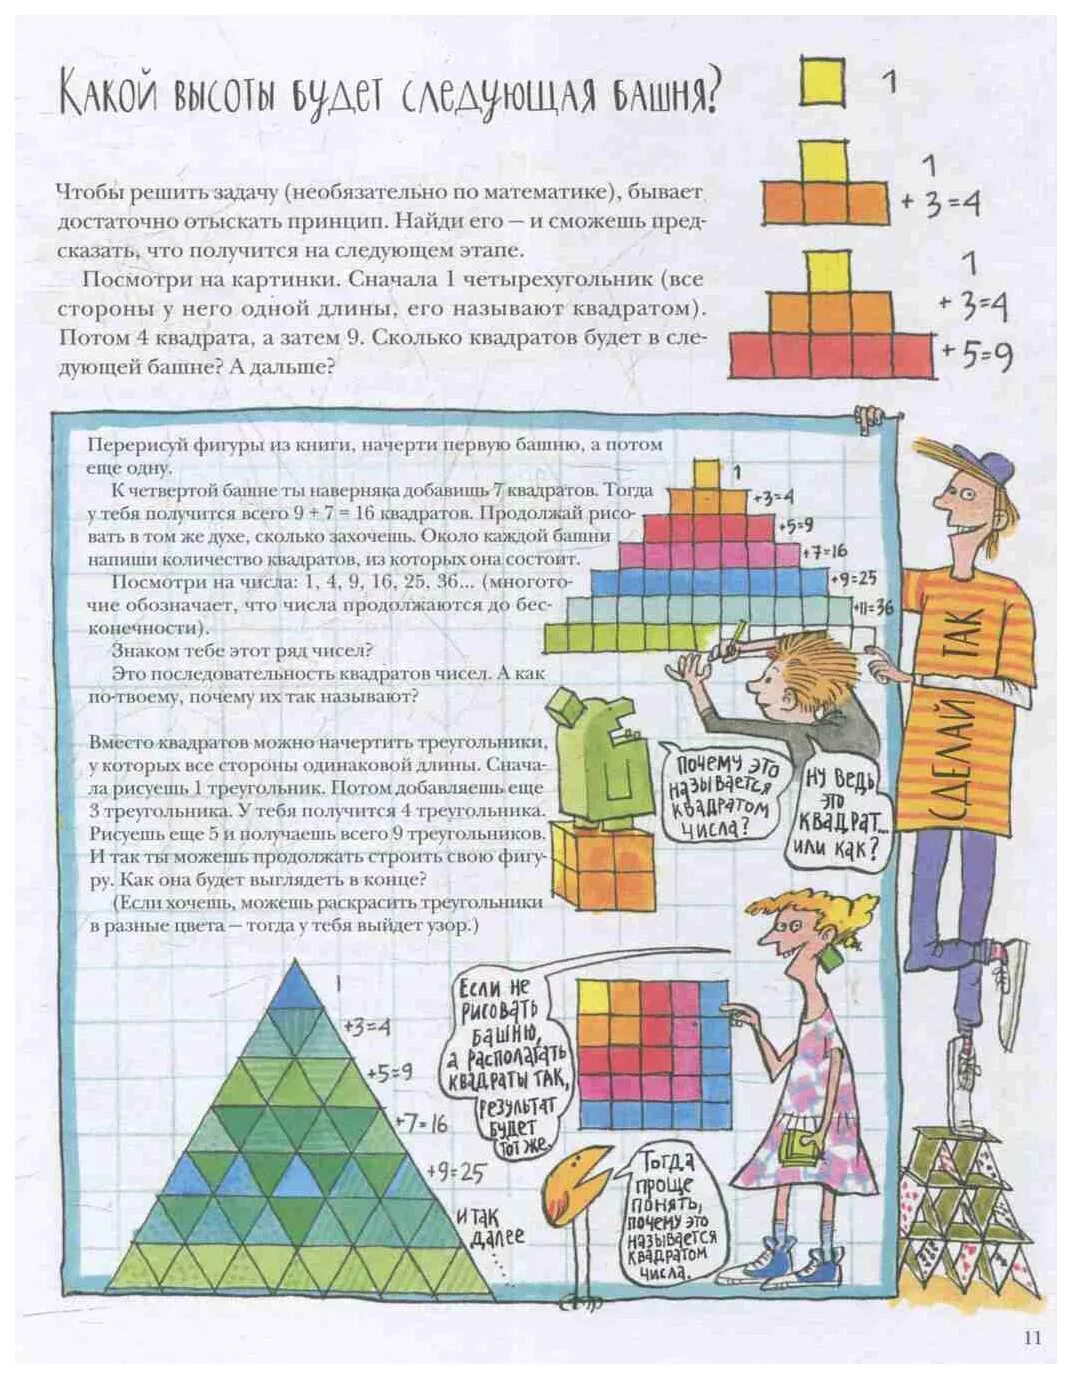 Какой высоты будет следующая башня?
1
1
+ 3=4
1
+ 3=4
+5=9
Чтобы решить задачу (необязательно по математике), бывает
достаточно отыскать принцип. Найди его – и сможешь пред-
сказать, что получится на следующем этапе.
Посмотри на картинки. Сначала 1 четырехугольник (все
стороны у него одной длины, его называют квадратом).
Потом 4 квадрата, а затем 9. Сколько квадратов будет в сле-
дующей башне? А дальше?
Перерисуй фигуры из книги, начерти первую башню, а потом
еще одну.
К четвертой башне ты наверняка добавишь 7 квадратов. Тогда
у тебя получится всего 9 + 7 = 16 квадратов. Продолжай рисо-
вать в том же духе, сколько захочешь. Около каждой башни
напиши количество квадратов, из которых она состоит.
Посмотри на числа: 1, 4, 9, 16, 25, 36... (многото-
чие обозначает, что числа продолжаются до бес-
конечности).
Знаком тебе этот ряд чисел?
Это последовательность квадратов чисел. А как
по-твоему, почему их так называют?
1
+3=4
+5=9
+7=16
+9=25
+11=36
СДЕЛАЙ ТАК
Почему это
называется
квадратом
числа?
Ну ведь
это
квадрат...
или как?
Вместо квадратов можно начертить треугольники,
у которых все стороны одинаковой длины. Снача-
ла рисуешь 1 треугольник. Потом добавляешь еще
3 треугольника. У тебя получится 4 треугольника.
Рисуешь еще 5 и получаешь всего 9 треугольников.
И так ты можешь продолжать строить свою фигу-
ру. Как она будет выглядеть в конце?
(Если хочешь, можешь раскрасить треугольники
в разные цвета – тогда у тебя выйдет узор.)
1
+3=4
+5=9
+7=16
+9=25
и так
далее
Если не
рисовать
башню,
а располагать
квадраты так,
результат
будет
тот же.
Тогда
проще
понять,
почему это
называется
квадратом
числа.
11